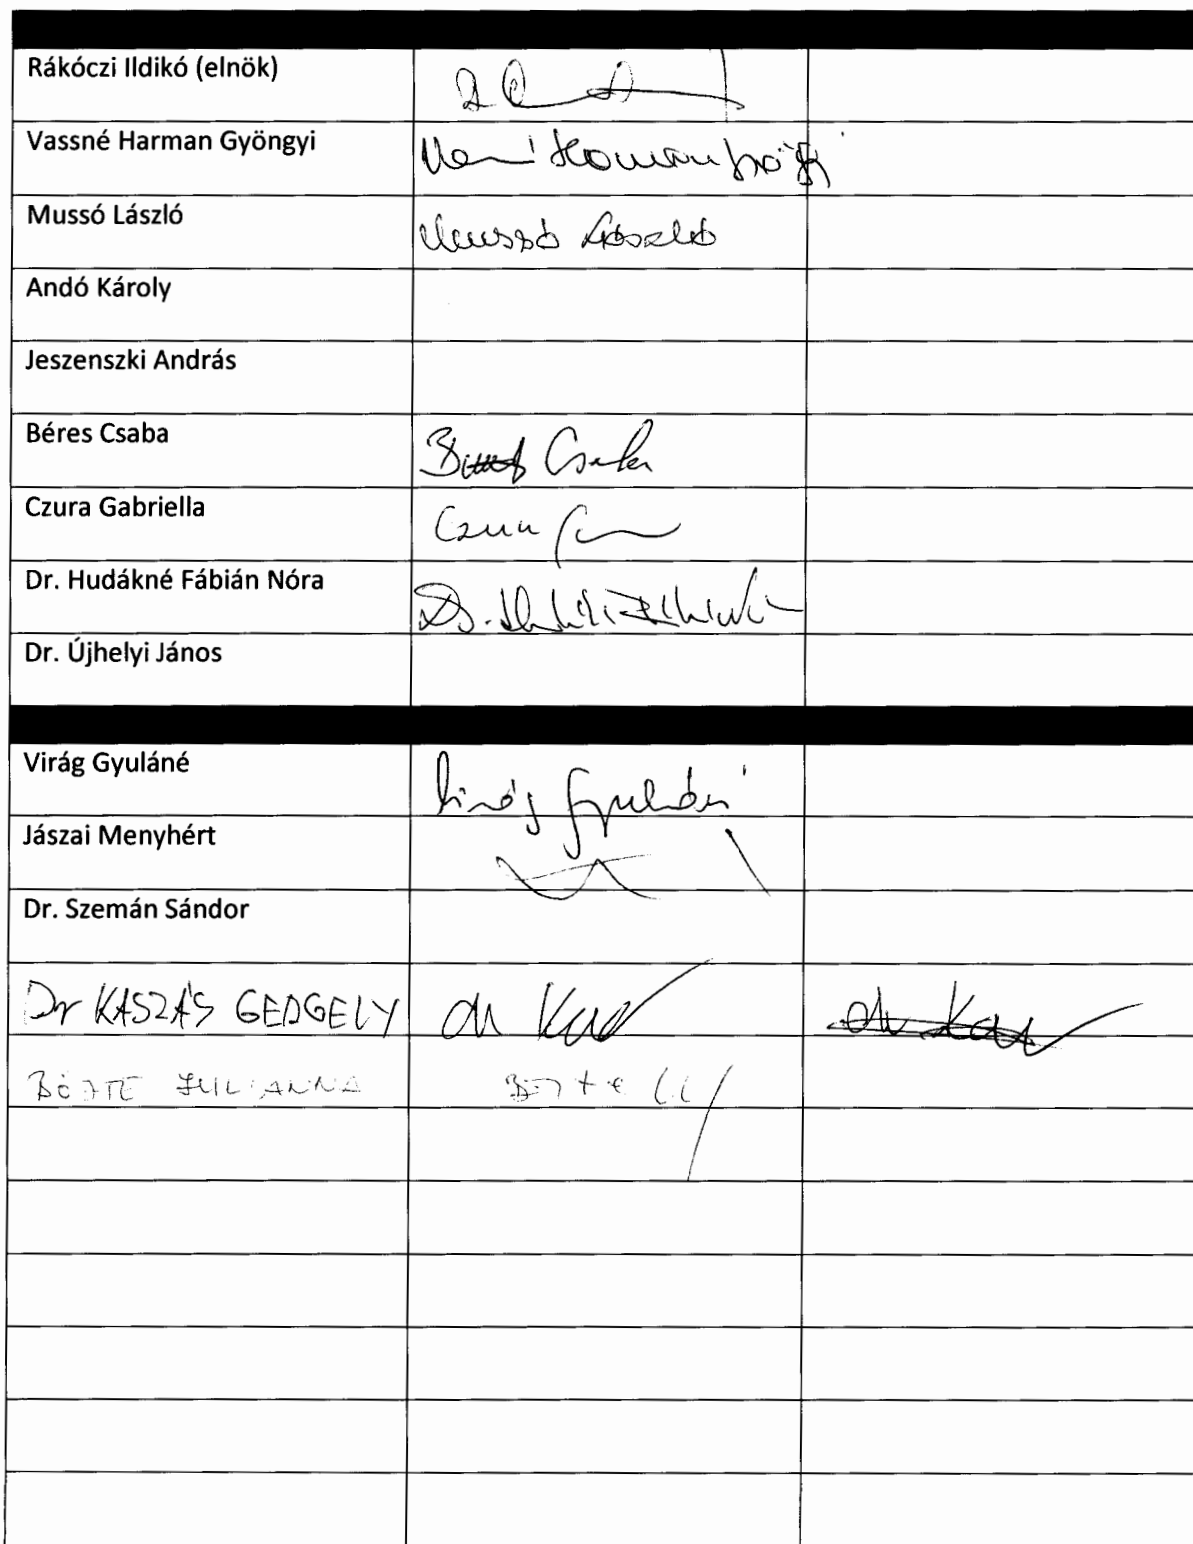 Rákóczi Ildikó (elnök)
Vassné Harman Gyöngyi
Mussó László
Mussó László
Andó Károly
Jeszenszki András
Béres Csaba
Csaba
Czura Gabriella
Czura
Dr. Hudákné Fábián Nóra
Dr.
Dr. Újhelyi János
Virág Gyuláné
Virág Gyuláné
Jászai Menyhért
Dr. Szemán Sándor
Dr KASZÁS GERGELY dr
BÖJTE JULIANNA